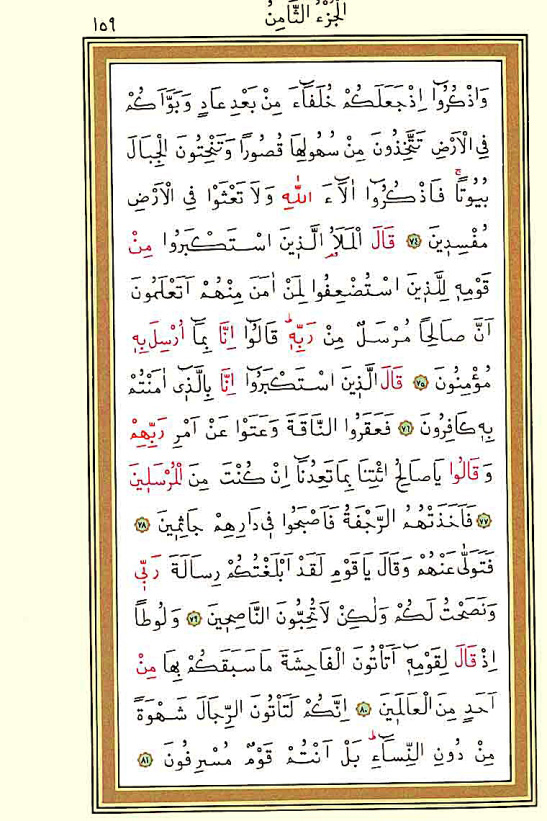 الْجُزْءُ الثَّامِنُ
١٥٩
وَاذْكُرُٓوا اِذْ جَعَلَكُمْ خُلَفَٓاءَ مِنْ بَعْدِ عَادٍ وَبَوَّاَكُمْ
فِي الْاَرْضِ تَتَّخِذُونَ مِنْ سُهُولِهَا قُصُورًا وَتَنْحِتُونَ الْجِبَالَ
بُيُوتًاۚ فَاذْكُرُٓوا اٰلَٓاءَ اللّٰهِ وَلَا تَعْثَوْا فِي الْاَرْضِ
مُفْسِدٖينَ ﴿٧٤﴾ قَالَ الْمَلَاُ الَّذٖينَ اسْتَكْبَرُوا مِنْ
قَوْمِهٖ لِلَّذٖينَ اسْتُضْعِفُوا لِمَنْ اٰمَنَ مِنْهُمْ اَتَعْلَمُونَ
اَنَّ صَالِحًا مُرْسَلٌ مِنْ رَبِّهٖؕ قَالُٓوا اِنَّا بِمَٓا اُرْسِلَ بِهٖ
مُؤْمِنُونَ ﴿٧٥﴾ قَالَ الَّذٖينَ اسْتَكْبَرُٓوا اِنَّا بِالَّذٖٓى اٰمَنْتُمْ
بِهٖ كَافِرُونَ ﴿٧٦﴾ فَعَقَرُوا النَّاقَةَ وَعَتَوْا عَنْ اَمْرِ رَبِّهِمْ
وَقَالُوا يَاصَالِحُ ائْتِنَا بِمَا تَعِدُنَٓا اِنْ كُنْتَ مِنَ الْمُرْسَلٖينَ
﴿٧٧﴾ فَاَخَذَتْهُمُ الرَّجْفَةُ فَاَصْبَحُوا فٖى دَارِهِمْ جَاثِمٖينَ ﴿٧٨﴾
فَتَوَلّٰى عَنْهُمْ وَقَالَ يَاقَوْمِ لَقَدْ اَبْلَغْتُكُمْ رِسَالَةَ رَبّٖى
وَنَصَحْتُ لَكُمْ وَلٰكِنْ لَا تُحِبُّونَ النَّاصِحٖينَ ﴿٧٩﴾ وَلُوطًا
اِذْ قَالَ لِقَوْمِهٖٓ اَتَاْتُونَ الْفَاحِشَةَ مَا سَبَقَكُمْ بِهَا مِنْ
اَحَدٍ مِنَ الْعَالَمٖينَ ﴿٨٠﴾ اِنَّكُمْ لَتَاْتُونَ الرِّجَالَ شَهْوَةً
مِنْ دُونِ النِّسَٓاءِؕ بَلْ اَنْتُمْ قَوْمٌ مُسْرِفُونَ ﴿٨١﴾